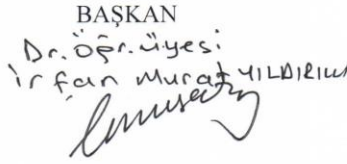 BAŞKAN
Dr. Öğr. Üyesi
İrfan Murat YILDIRIM